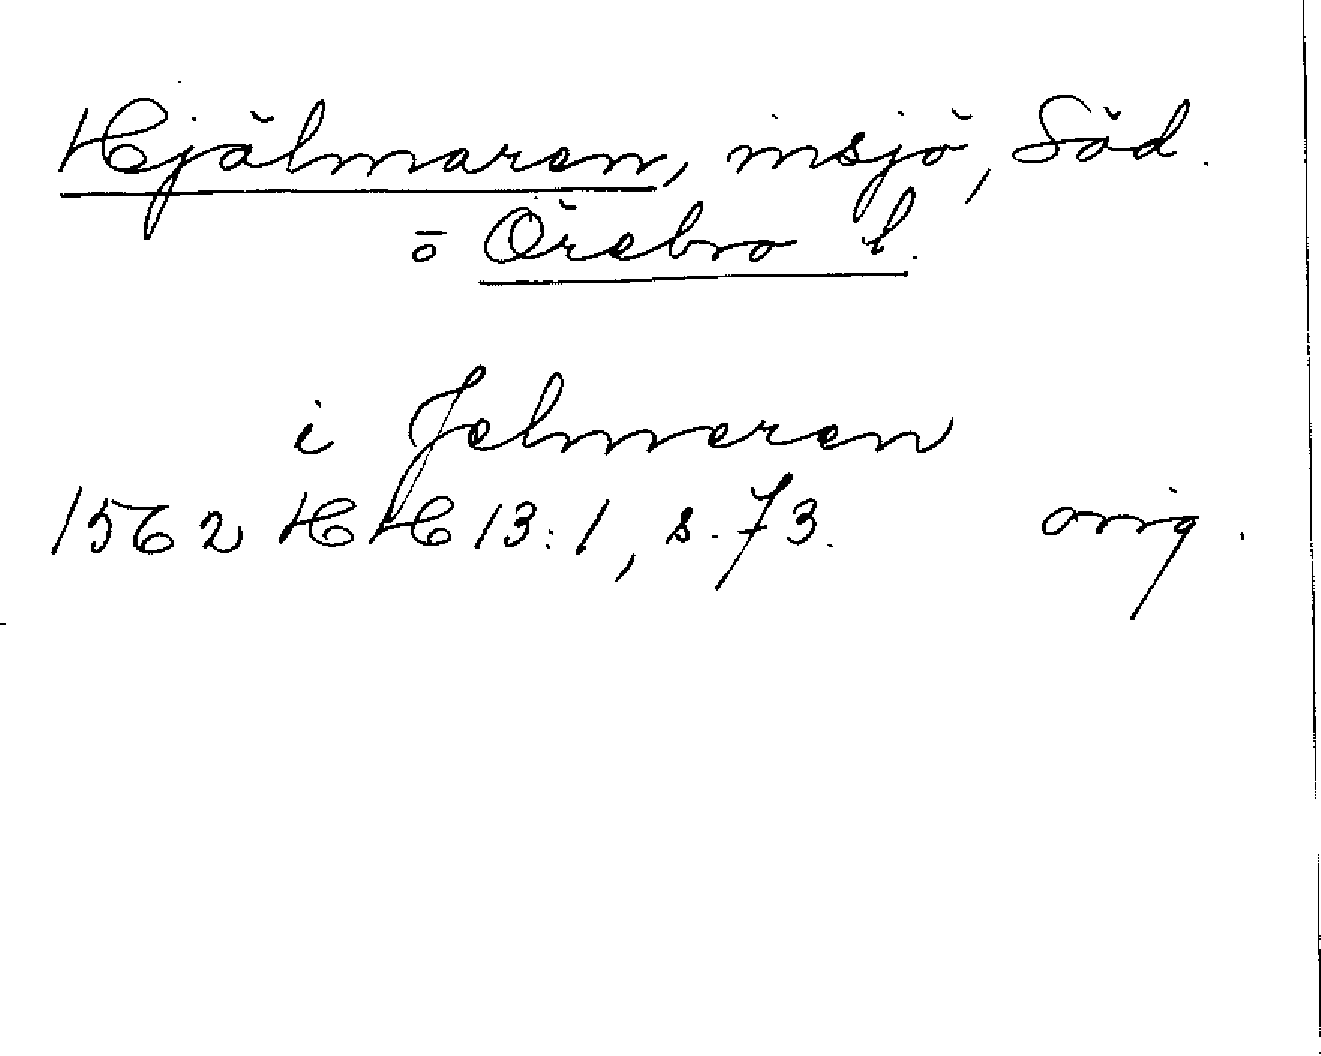 Hjälmaren, insjö, Söd.
o Örebro l.
i Jelmeren
1562 HH 13:1, s. 73. orig.